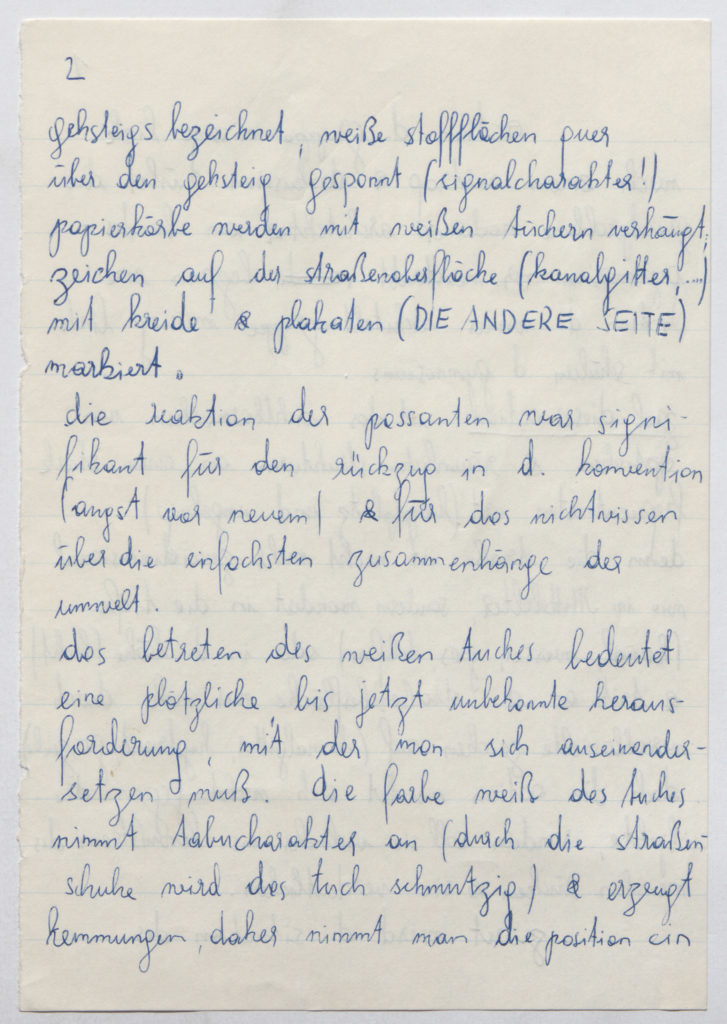 2
gehsteigs bezeichnet, weiße stoffflächen quer
über den gehsteig gespannt (signalcharakter!)
papierkörbe werden mit weißen tüchern verhängt,
zeichen auf der straßenoberfläche (kanalgitter,...)
mit kreide & plakaten (DIE ANDERE SEITE)
markiert.
die reaktion der passanten war signi-
fikant für den rückzug in d. konvention
(angst vor neuem) & für das nichtwissen
über die einfachsten zusammenhänge der
umwelt.
das betreten des weißen tuches bedeutet
eine plötzliche, bis jetzt unbekannte heraus-
forderung, mit der man sich auseinander-
setzen muß. die farbe weiß des tuches
nimmt tabucharakter an (durch die straßen-
schuhe wird das tuch schmutzig) & erzeugt
hemmungen, daher nimmt man die position ein